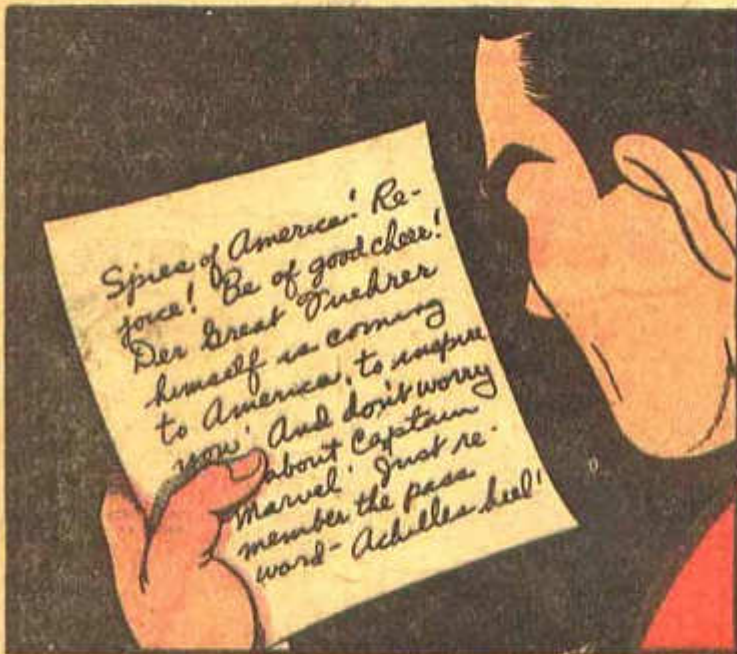 Spies of America! Re-
joice! Be of good cheer!
Der Great Fuehrer
himself is coming
to America, to inspire
you! And don't worry
about Captain
Marvel! Just re-
member the pass
word- Achilles heel!